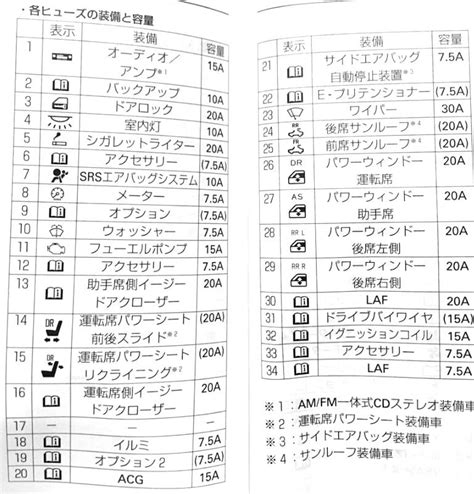 ・各ヒューズの装備と容量
表示 装備 容量
1 オーディオ／アンプ※1 15A
2 バックアップ 10A
3 ドアロック 20A
4 室内灯 10A
5 シガレットライター 20A
6 アクセサリー (7.5A)
7 SRSエアバッグシステム 10A
8 メーター 7.5A
9 オプション (7.5A)
10 ウォッシャー 7.5A
11 フューエルポンプ 15A
12 アクセサリー 7.5A
13 助手席側イージードアクローザー 20A
14 DR 運転席パワーシート前後スライド※2 (20A)
15 DR 運転席パワーシートリクライニング※2 (20A)
16 運転席側イージードアクローザー 20A
17 － － －
18 イルミ 7.5A
19 オプション2 (7.5A)
20 ACG 15A
表示 装備 容量
21 サイドエアバッグ自動停止装置※3 7.5A
22 E-プリテンショナー (7.5A)
23 ワイパー 30A
24 RR 後席サンルーフ※4 (20A)
25 FR 前席サンルーフ※4 (20A)
26 DR パワーウィンドー運転席 20A
27 AS パワーウィンドー助手席 20A
28 RR L パワーウィンドー後席左側 20A
29 RR R パワーウィンドー後席右側 20A
30 LAF 20A
31 ドライブバイワイヤ (15A)
32 イグニッションコイル 15A
33 アクセサリー 7.5A
34 LAF 7.5A
※1：AM/FM一体式CDステレオ装備車
※2：運転席パワーシート装備車
※3：サイドエアバッグ装備車
※4：サンルーフ装備車